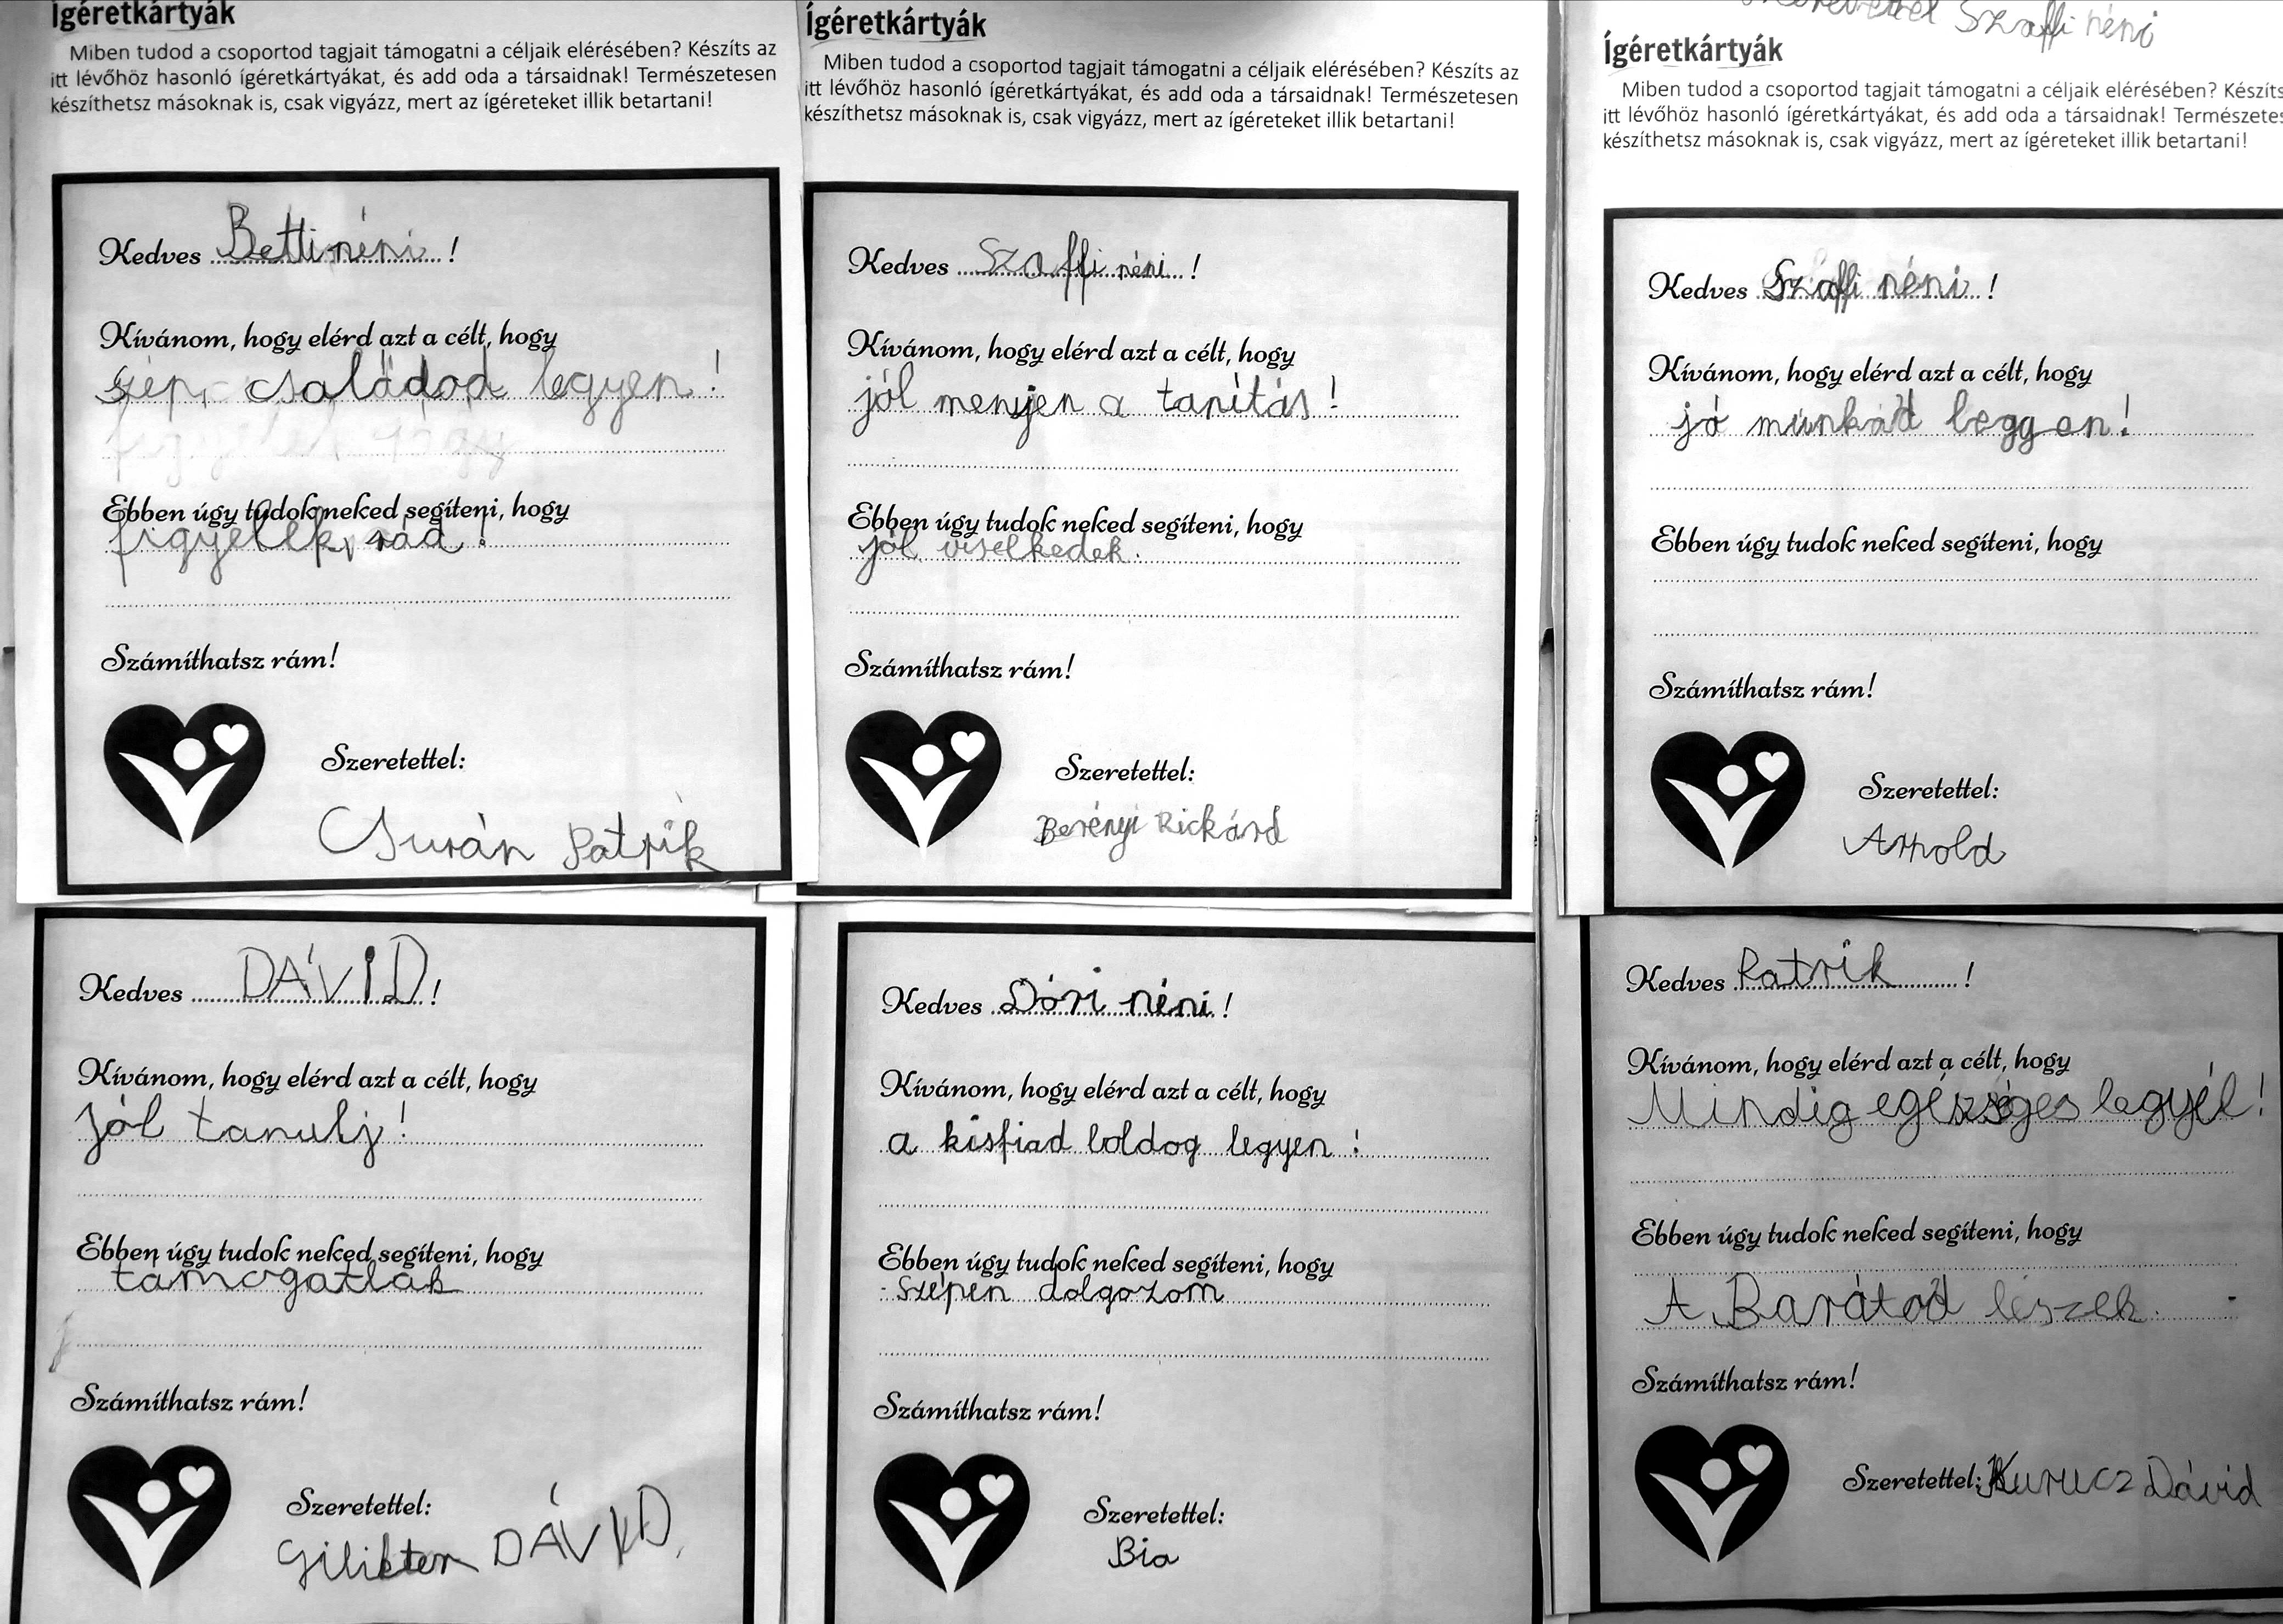 Ígéretkártyák
Miben tudod a csoportod tagjait támogatni a céljaik elérésében? Készíts az
itt lévőhöz hasonló ígéretkártyákat, és add oda a társaidnak! Természetesen
készíthetsz másoknak is, csak vigyázz, mert az ígéreteket illik betartani!
Kedves Betti néni!
Kívánom, hogy elérd azt a célt, hogy
szép családod legyen!
Ebben úgy tudok neked segíteni, hogy
figyelek rád!
Számíthatsz rám!
Szeretettel:
Csurán Patrik
Ígéretkártyák
Miben tudod a csoportod tagjait támogatni a céljaik elérésében? Készíts az
itt lévőhöz hasonló ígéretkártyákat, és add oda a társaidnak! Természetesen
készíthetsz másoknak is, csak vigyázz, mert az ígéreteket illik betartani!
Kedves Szaffi néni!
Kívánom, hogy elérd azt a célt, hogy
jól menjen a tanítás!
Ebben úgy tudok neked segíteni, hogy
jól viselkedek.
Számíthatsz rám!
Szeretettel:
Berényi Rickárd
Szaffi néni
Ígéretkártyák
Miben tudod a csoportod tagjait támogatni a céljaik elérésében? Készíts
itt lévőhöz hasonló ígéretkártyákat, és add oda a társaidnak! Természetes
készíthetsz másoknak is, csak vigyázz, mert az ígéreteket illik betartani!
Kedves Szaffi néni!
Kívánom, hogy elérd azt a célt, hogy
jó munkád leggen!
Ebben úgy tudok neked segíteni, hogy
Számíthatsz rám!
Szeretettel:
Arnold
Kedves DÁVID!
Kívánom, hogy elérd azt a célt, hogy
Jól tanulj!
Ebben úgy tudok neked segíteni, hogy
támogatlak
Számíthatsz rám!
Szeretettel:
DÁVID
Kedves Dóri néni!
Kívánom, hogy elérd azt a célt, hogy
a kisfiad boldog legyen!
Ebben úgy tudok neked segíteni, hogy
szépen dolgozom
Számíthatsz rám!
Szeretettel:
Bia
Kedves Patrik!
Kívánom, hogy elérd azt a célt, hogy
Mindig egészséges legyél!
Ebben úgy tudok neked segíteni, hogy
A Barátod leszek.
Számíthatsz rám!
Szeretettel: Kurucz Dávid